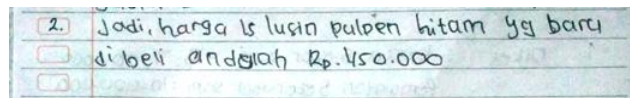 2. Jadi, harga 15 lusin pulpen hitam yg baru
di beli andalah Rp. 450.000